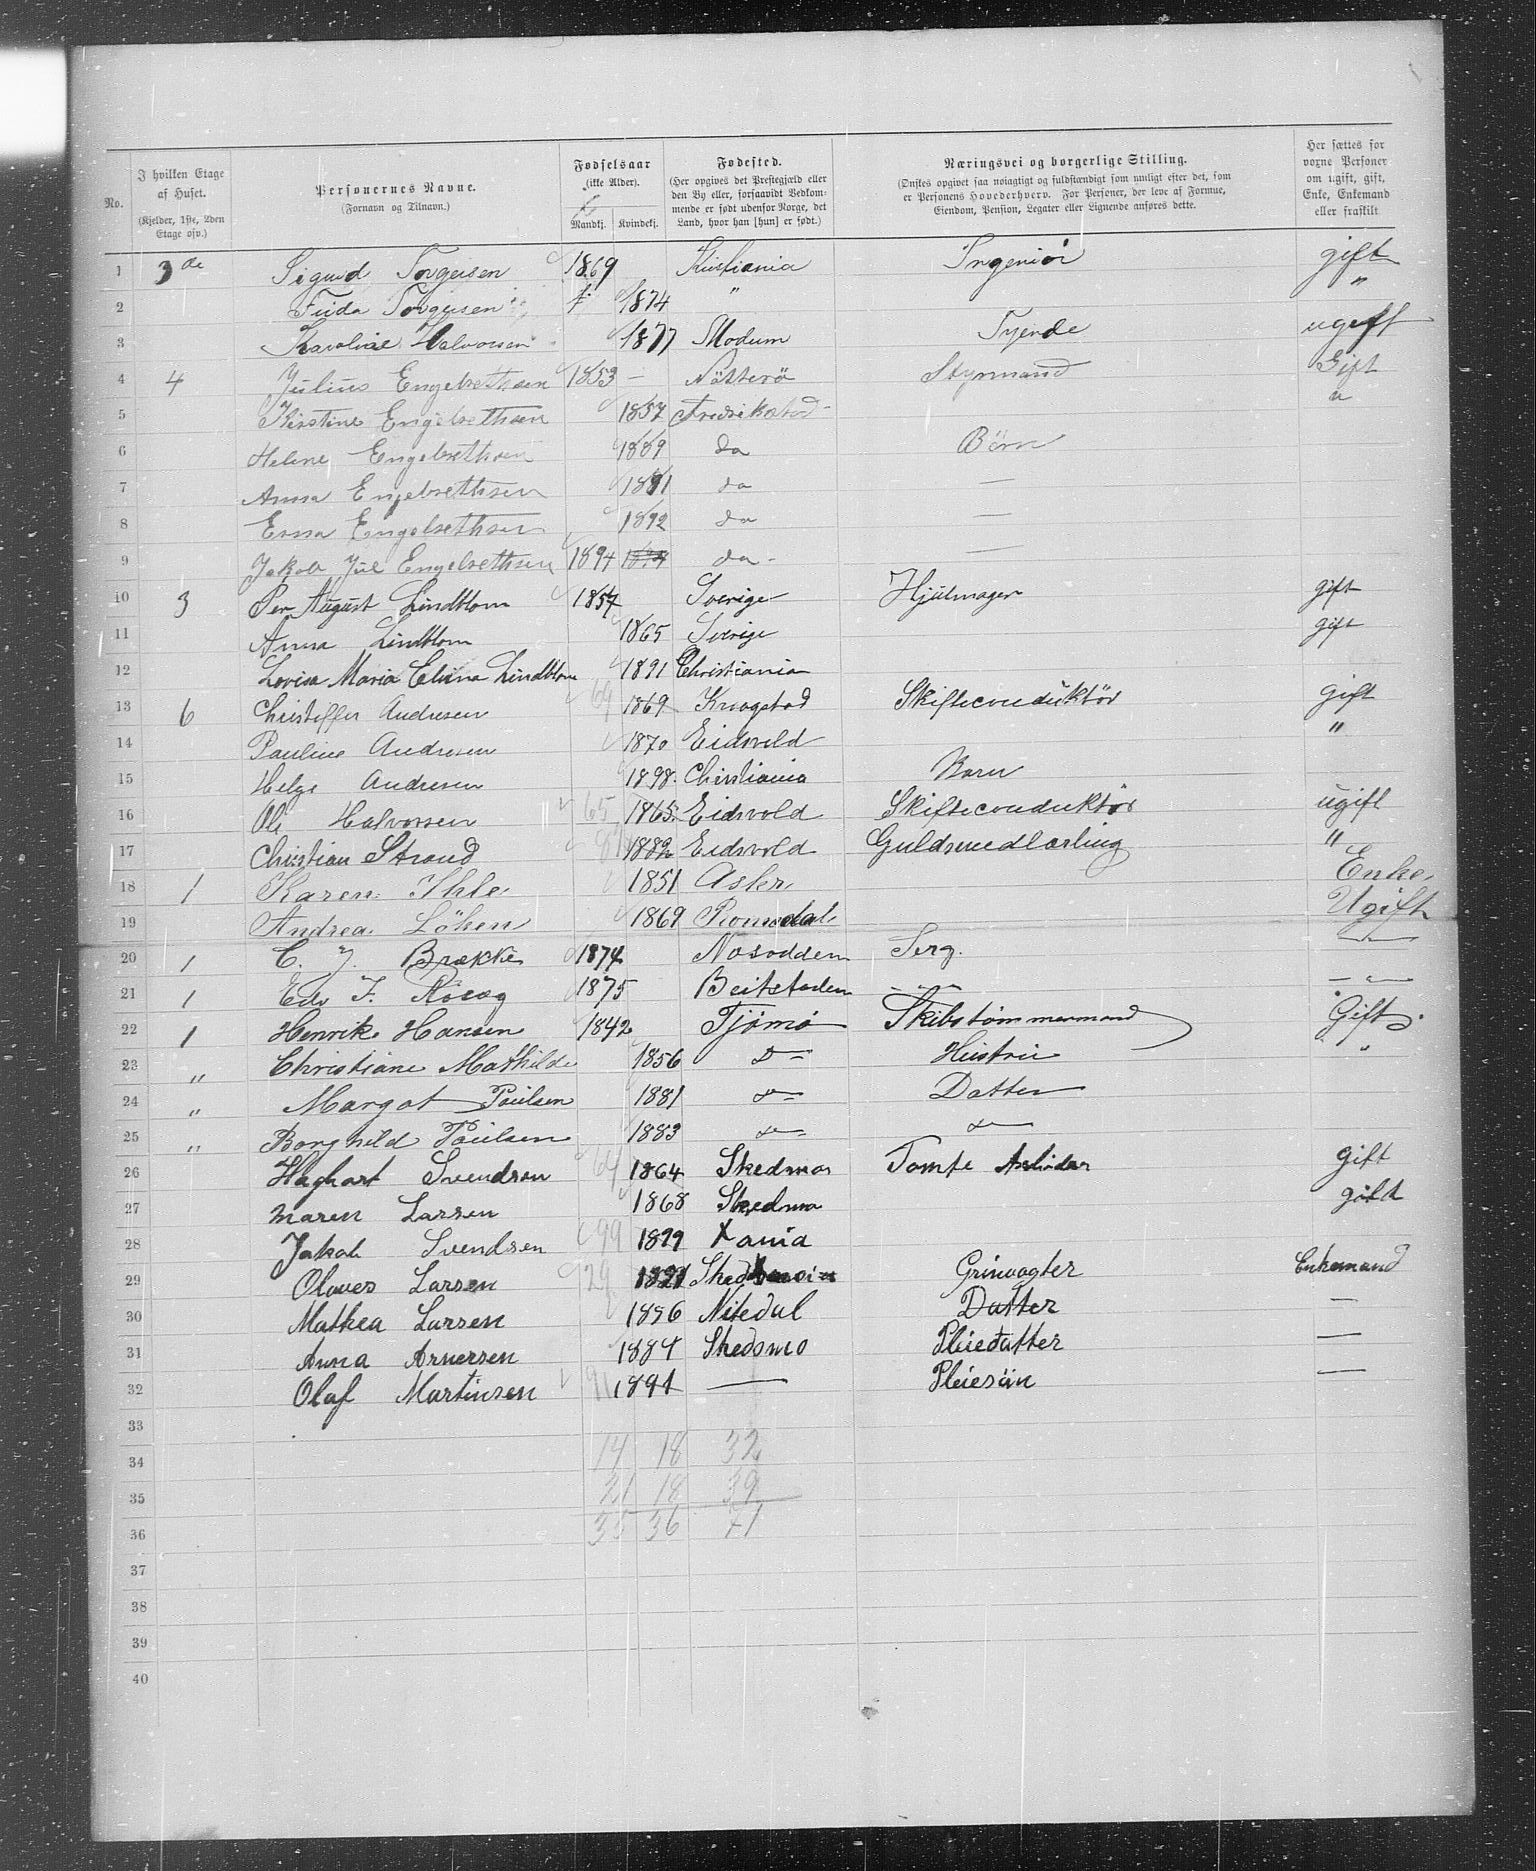 No.
I hvilken Etage af Huset.
(Kjelder, 1ste, 2den Etage osv.)
Personernes Navne.
(Fornavn og Tilnavn.)
Fødselsaar
(ikke Alder).
Mandkj. Kvindekj.
Fødested.
(Her opgives det Prestegjæld eller
den By eller, forsaavidt Vedkom-
mende er født udenfor Norge, det
Land, hvor han [hun] er født.)
Næringsvei og borgerlige Stilling.
(Ønskes opgivet saa nøiagtigt og fuldstændigt som muligt efter det, som
er Personens Hovederhverv. For Personer, der leve af Formue,
Eiendom, Pension, Legater eller Lignende anføres dette.
Her sættes for
voxne Personer
om ugift, gift,
Enke, Enkemand
eller fraskilt
1 3de Sigurd Torgersen 1869 Kristiania Ingeniør gift
2 Frida Torgersen 1874 " "
3 Karoline Halvorsen 1877 Modum Tyende ugift
4 4 Julius Engebrethsen 1853 — Nötterö Styrmand Gift
5 Kirstine Engebrethsen 1857 Fredrikstad "
6 Helene Engebrethsen 1889 do Börn
7 Anna Engebrethsen 1891 do —
8 Erna Engebrethsen 1892 do —
9 Jakob Jul Engebrethsen 1894 do —
10 3 Per August Lindblom 1857 Sverige Hjulmager gift
11 Anna Lindblom 1865 Sverige gift
12 Lovisa Maria Elvina Lindblom 1891 Christiania
13 6 Christoffer Andresen 69 1869 Krogstad Skifteconduktör gift
14 Pauline Andresen 1870 Eidsvold "
15 Helge Andresen 1898. Christiania Barn
16 Ole Halvorsen 65 1865. Eidsvold Skifteconduktör ugift
17 Christian Strand 1882 Eidsvold Guldsmedlærling "
18 1 Karen Ihle 1851 Asker Enke
19 Andrea Löken 1869 Romsdal Ugift
20 1 C. J. Brække 1874 Nesodden Serg. —"—
21 1 Edv F. 1875 Beitstaden —"— —"—
22 1 Henrik Hansen 1842 Tjømø Skibstømmermand Gift
23 " Christiane Mathilde 1856 D— Hustru "
24 " Margot Paulsen 1881 D— Datter
25 " Borghild Paulsen 1883 D— D—
26 Haghart Svendsen 64 1864 Skedmo Tomte Arbider gift
27 Maren Larsen 1868 Skedsmo gift
28 Jakob Svendsen 99 1899 Xania
29 Olaves Larsen 29 1829 Grinvagter Enkemand
30 Mathea Larsen 1856 Nitedal Datter —
31 Anna Arnersen 1884 Skedsmo Pleiedatter —
32 Olaf Martinsen 91 1891 — Pleiesön —
33
34 14 18 32
35 21 18 39
36 35 36 71
37
38
39
40